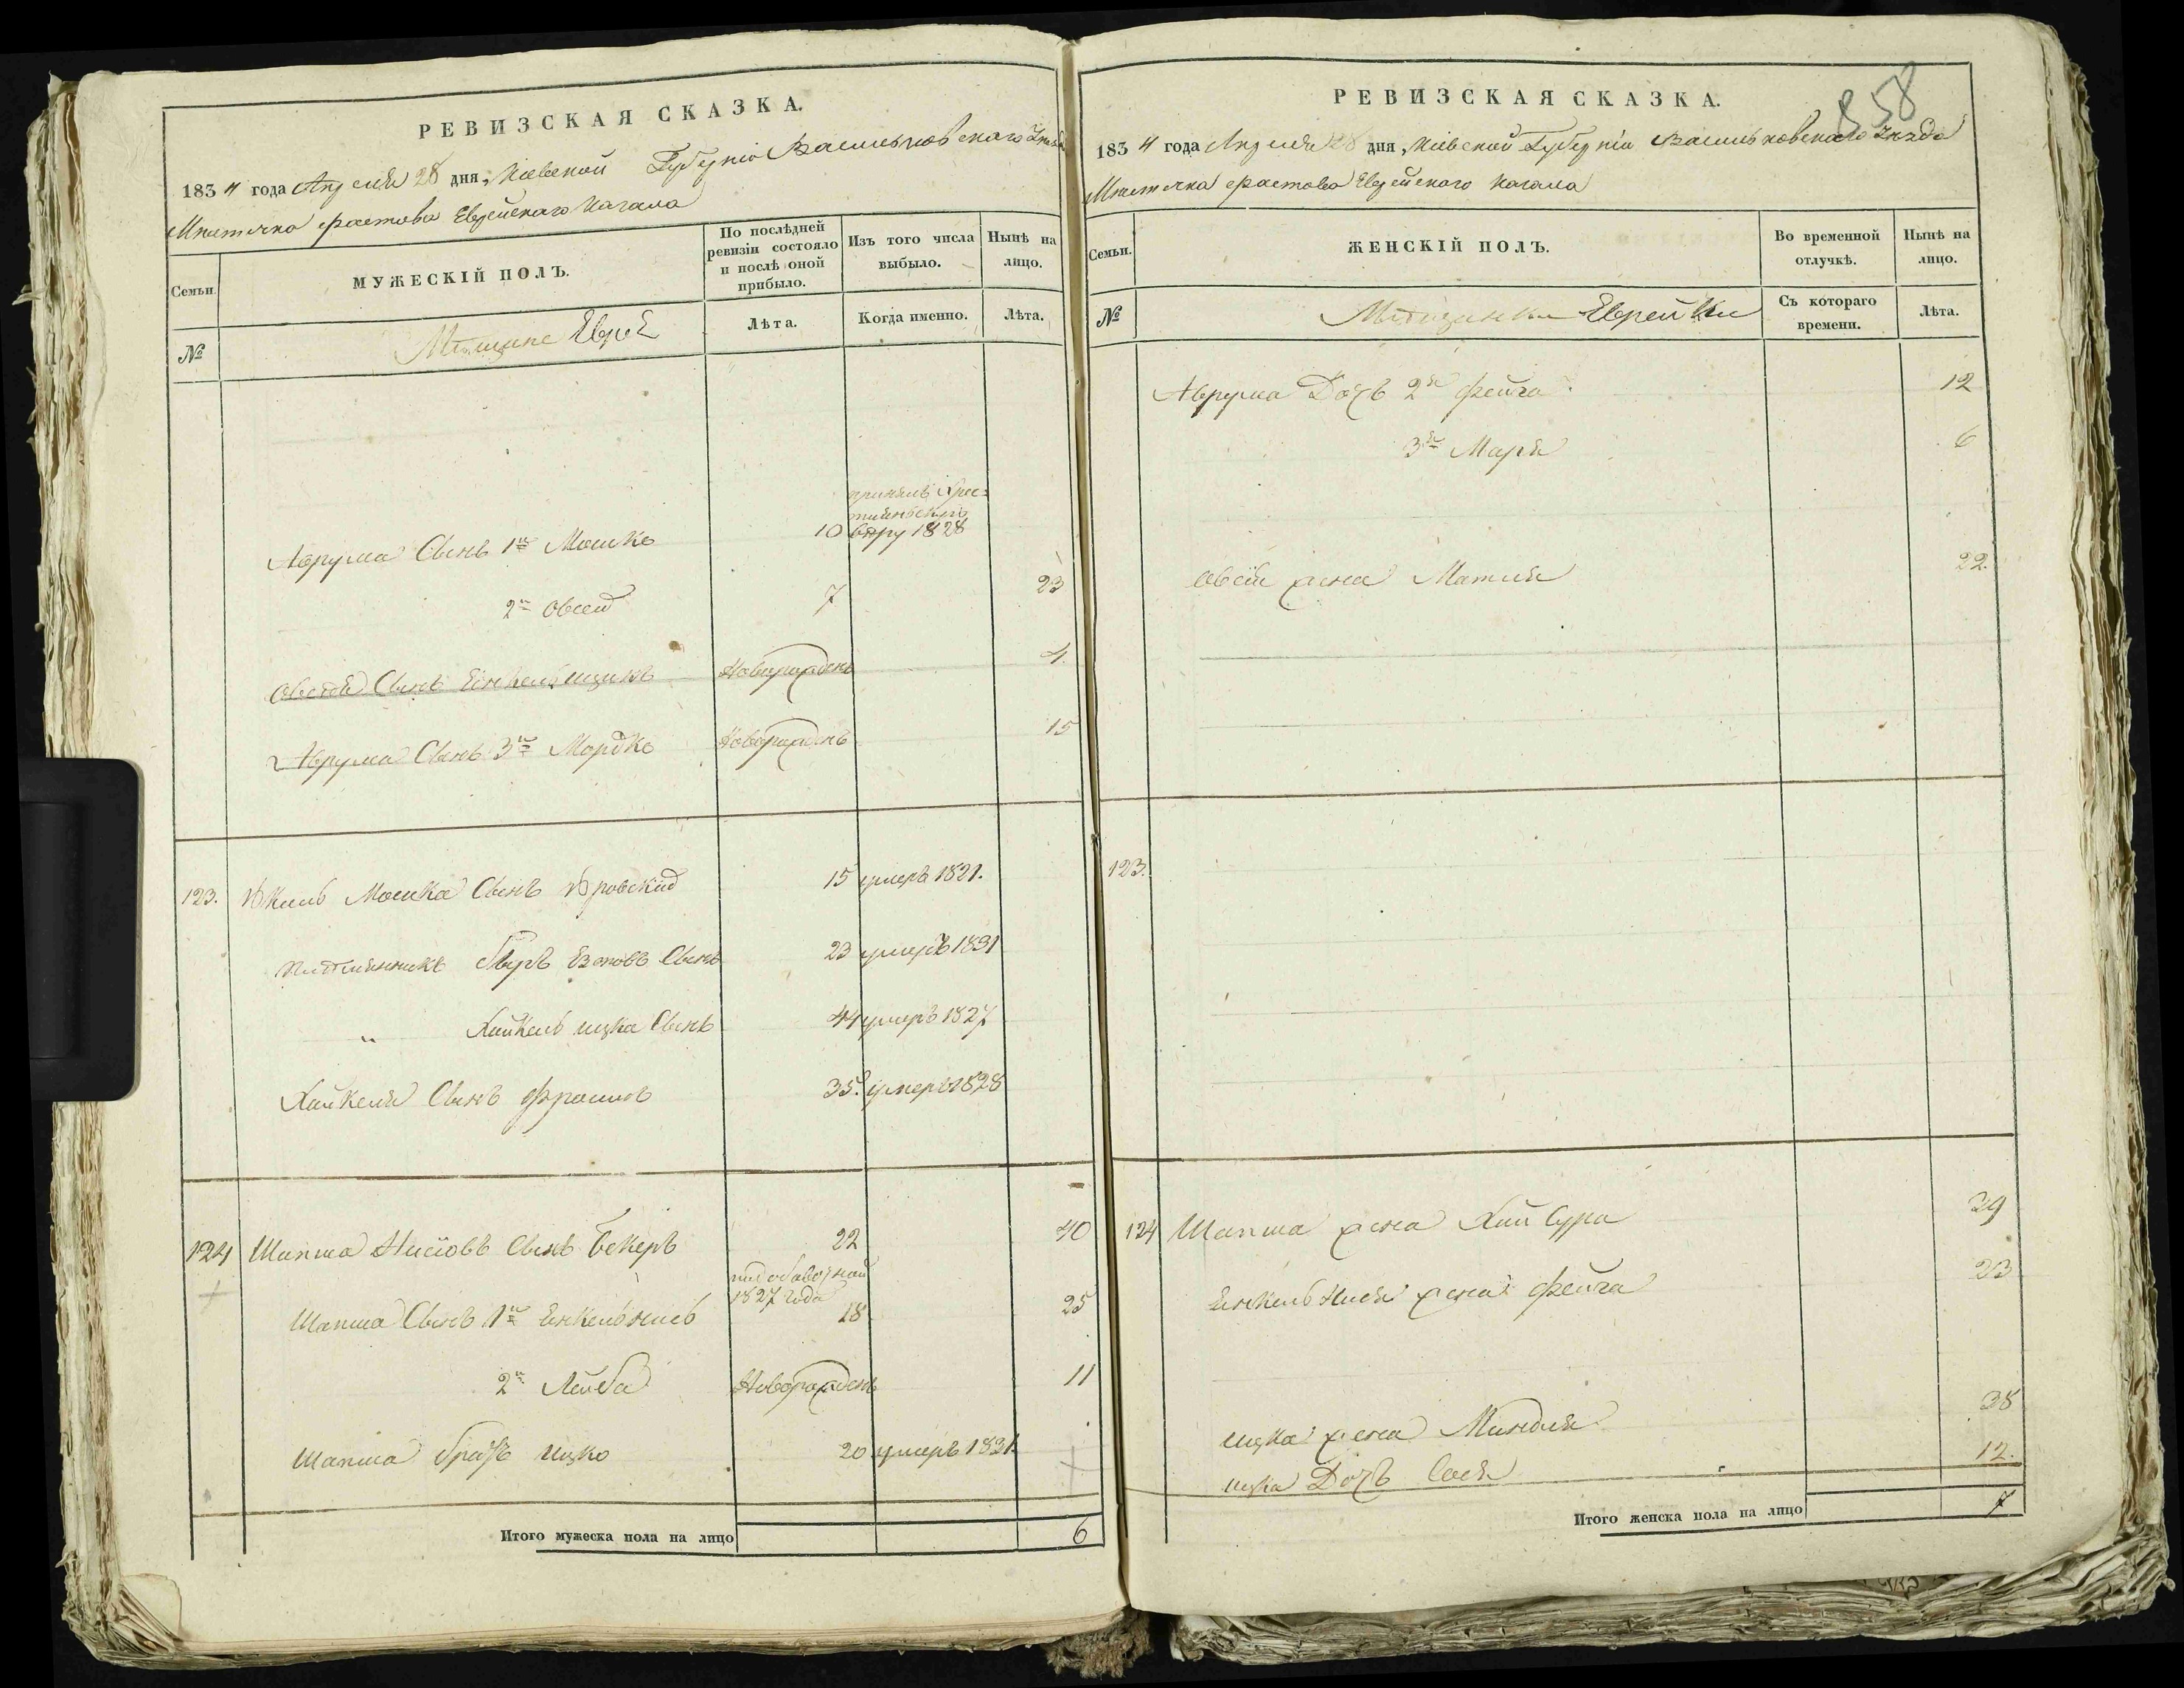 РЕВИЗСКАЯ СКАЗКА.
1834 года Апреля 28 дня, Кіевской Губерніи Васильковского Уезда
Мѣстечка Фастова Еврейского Кагала
Семьи.
МУЖЕСКІЙ ПОЛЪ.
По послѣдней ревизіи состояло и послѣ оной прибыло.
Изъ того числа выбыло.
Нынѣ на лицо.
№
Мѣщане Евреи
Лѣта.
Когда именно.
Лѣта.
принялъ Хрис=
тиянскую
Аврума Сынъ 1й Мошко 10 веру 1828
2й Овсей 7 23
Овсея Сынъ Енкель Ицикъ Новорожденъ 4
Аврума Сынъ 3й Мордко Новорожденъ 15
123. Мошка Сынъ 15 умеръ 1821.
Племянникъ Сынъ 23 умеръ 1831
" Хайкель Ицка Сынъ 44 умеръ 1827
Хайкеля Сынъ Фроимъ 35. умеръ 1828
124 Шапша Сынъ Бекеръ 22 40
по добавочной
1827 года
Шапша Сынъ 1й Енкель Нись 18 25
2й Лейба Новорожденъ 11
Шапша братъ Ицко 20 умеръ 1831.
Итого мужеска пола на лицо 6
358
РЕВИЗСКАЯ СКАЗКА.
1834 года Апреля 28 дня, Кіевской Губерніи Васильковского Уезда
Мѣстечка Фастова Еврейского Кагала
Семьи.
ЖЕНСКІЙ ПОЛЪ.
Во временной отлучкѣ.
Нынѣ на лицо.
№
Мѣщанки Еврейки
Съ котораго времени.
Лѣта.
Аврума Дочь 2я Фейга 12
3я Маря 6
Овсія жена Матля 22.
123.
124 Шапша жена Хай Сура 39
Енкель Нися жена Фейга 23
Ицка жена Миндля 38
Ицка Дочь Сося 12.
Итого женска пола на лицо 7